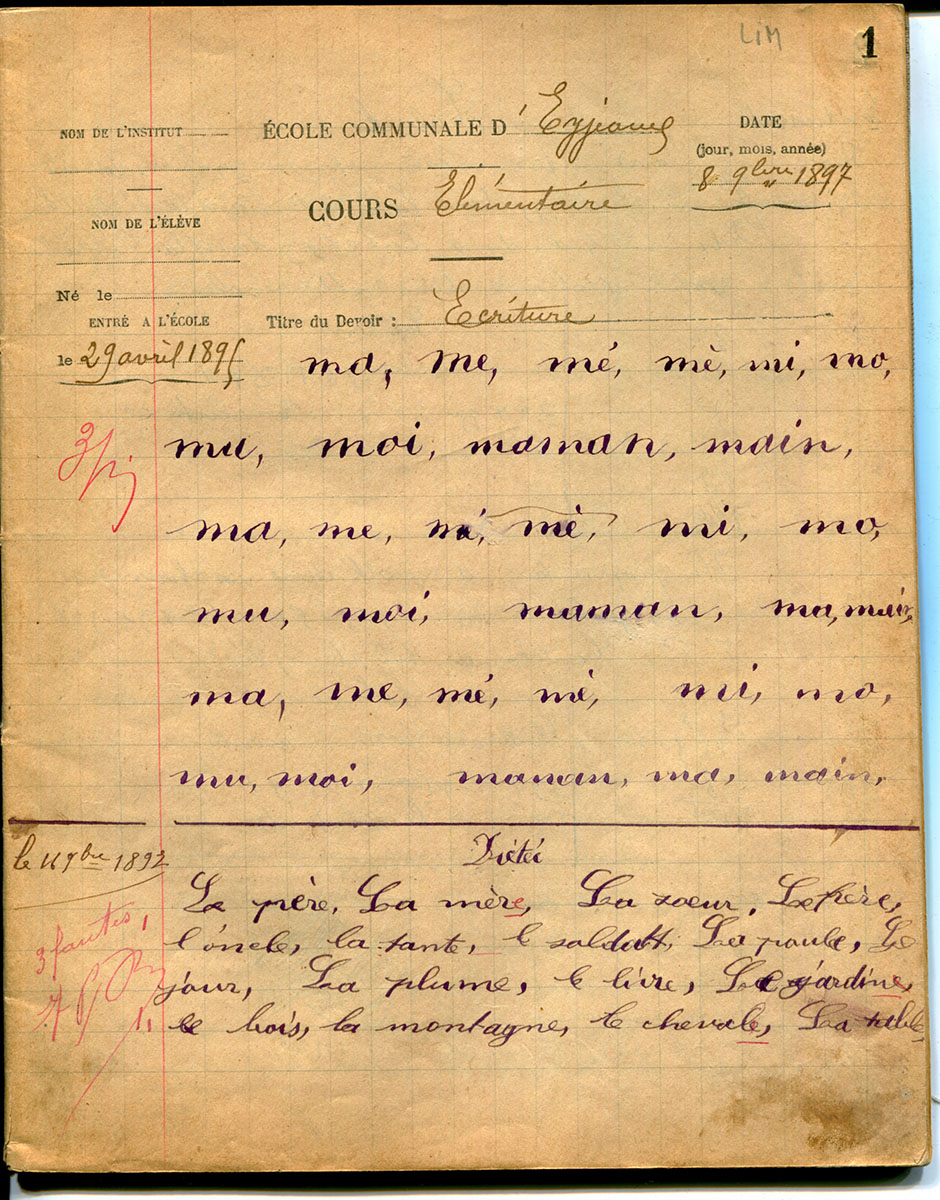 LIM
1
NOM DE L'INSTITUT
ÉCOLE COMMUNALE D' Eyjeaux
DATE
(jour, mois, année)
8 9bre 1897
COURS Elémentaire
NOM DE L'ÉLÈVE
Né le
ENTRÉ A L'ÉCOLE
Titre du Devoir : Ecriture
le 29 avril 1895
ma, me, mé, mè, mi, mo,
mu, moi, maman, main,
ma, me, mé, mè, mi, mo,
mu, moi, maman, ma, main,
ma, me, mé, mè, mi, mo,
mu, moi, maman, ma, main,
le 11 9bre 1897
Dictée
Le père, La mère, La soeur, Le frère,
l'óncle, la tante, le soldatt, La poule, Le
jour, La plume, le livre, Le jardine,
le bois, la montagne, le chevale, La table,
3 fautes,